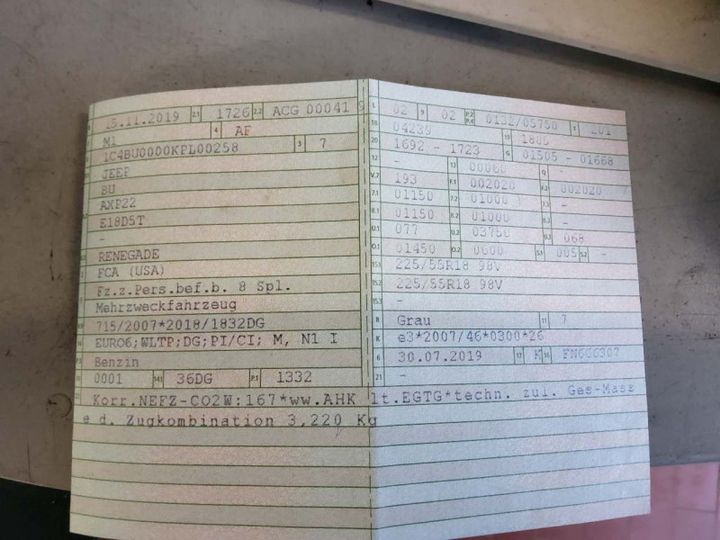 15.11.2019 2.1 1726 2.2 ACG 00041 9
M1 4 AF
1C4BU0000KPL00258 3 7
JEEP
BU
AXP22
E18D5T
-
RENEGADE
FCA (USA)
Fz.z.Pers.bef.b. 8 Spl.
Mehrzweckfahrzeug
715/2007*2018/1832DG
EURO6;WLTP;DG;PI/CI; M, N1 I
Benzin
0001 14.1 36DG P.1 1332
L 02 9 02 P.2 P.4 0132/05750 T 201
18 04239 19 1805
20 1692 - 1723 G 01505 - 01668
12 - 13 00060 Q -
V.7 193 F.1 002020 F.2 002020
7.1 01150 7.2 01000 7.3 -
8.1 01150 8.2 01000 8.3 -
U.1 077 U.2 03750 U.3 068
O.1 01450 O.2 0600 S.1 005 S.2 -
15.1 225/55R18 98V
15.2 225/55R18 98V
15.3 -
R Grau 11 7
K e3*2007/46*0300*26
6 30.07.2019 17 K 16
21 -
Korr.NEFZ-CO2W:167*ww.AHK lt.EGTG*techn. zul. Ges-Mass
e d. Zugkombination 3,220 Kg